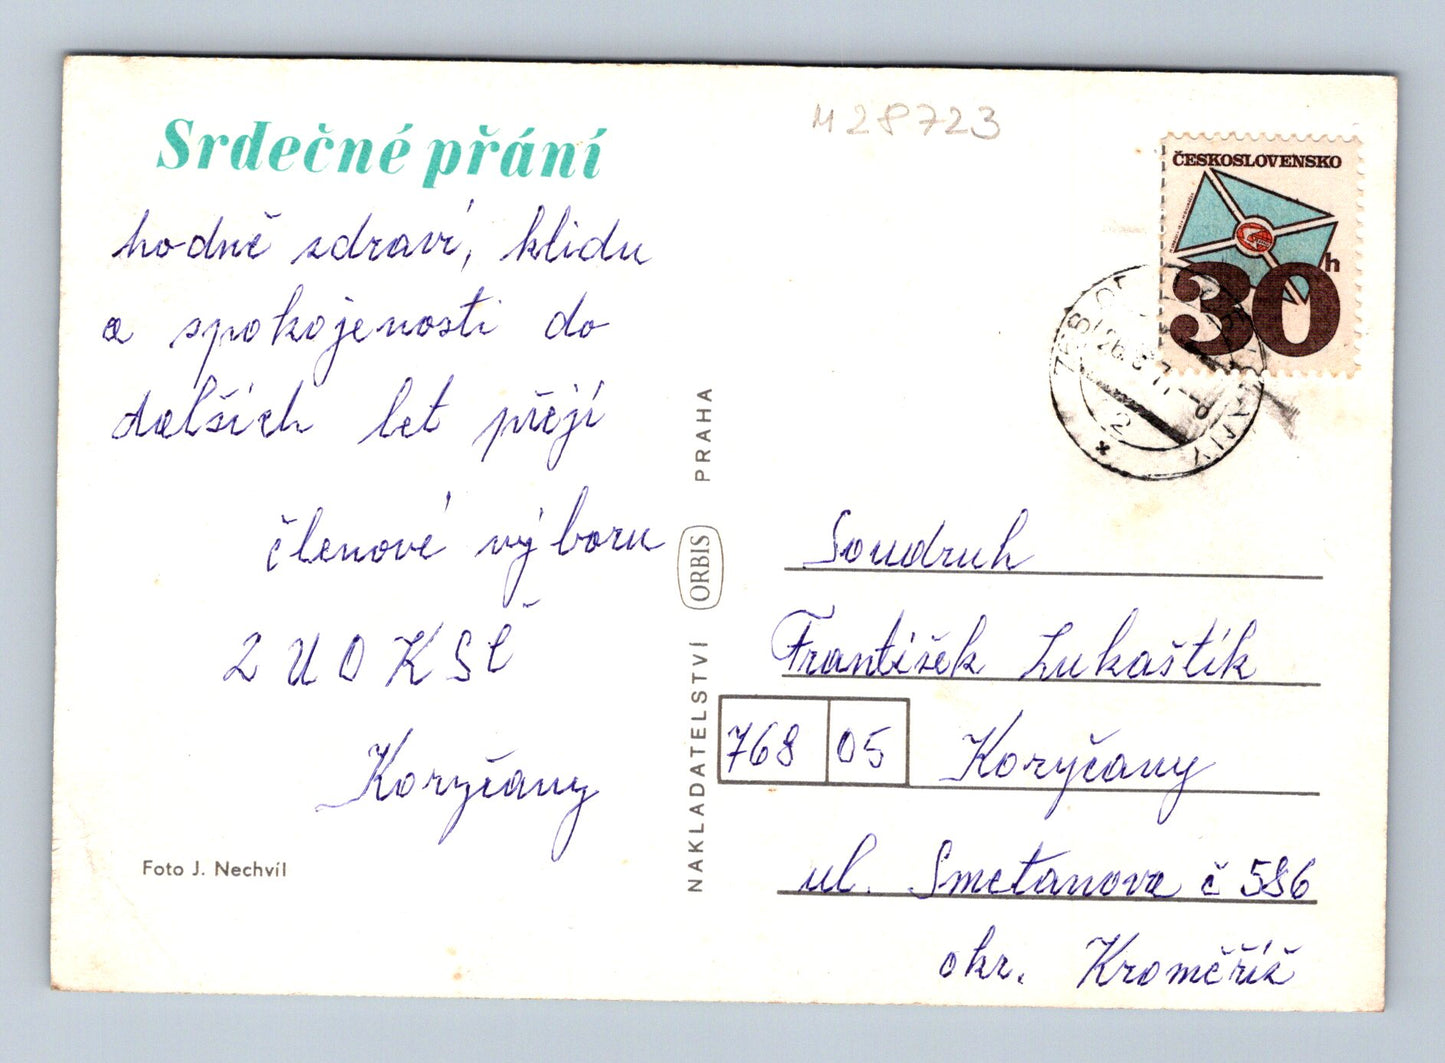 Srdečné přání
hodně zdraví, klidu
a spokojenosti do
dalších let přejí
členové výboru
ZUOKSČ
Koryčany
Foto J. Nechvíl
NAKLADATELSTVÍ ORBIS PRAHA
M28723
ČESKOSLOVENSKO
30h
2
Soudruh
František Lukaštík
768 05 Koryčany
ul. Smetanova č 586
okr. Kroměříž